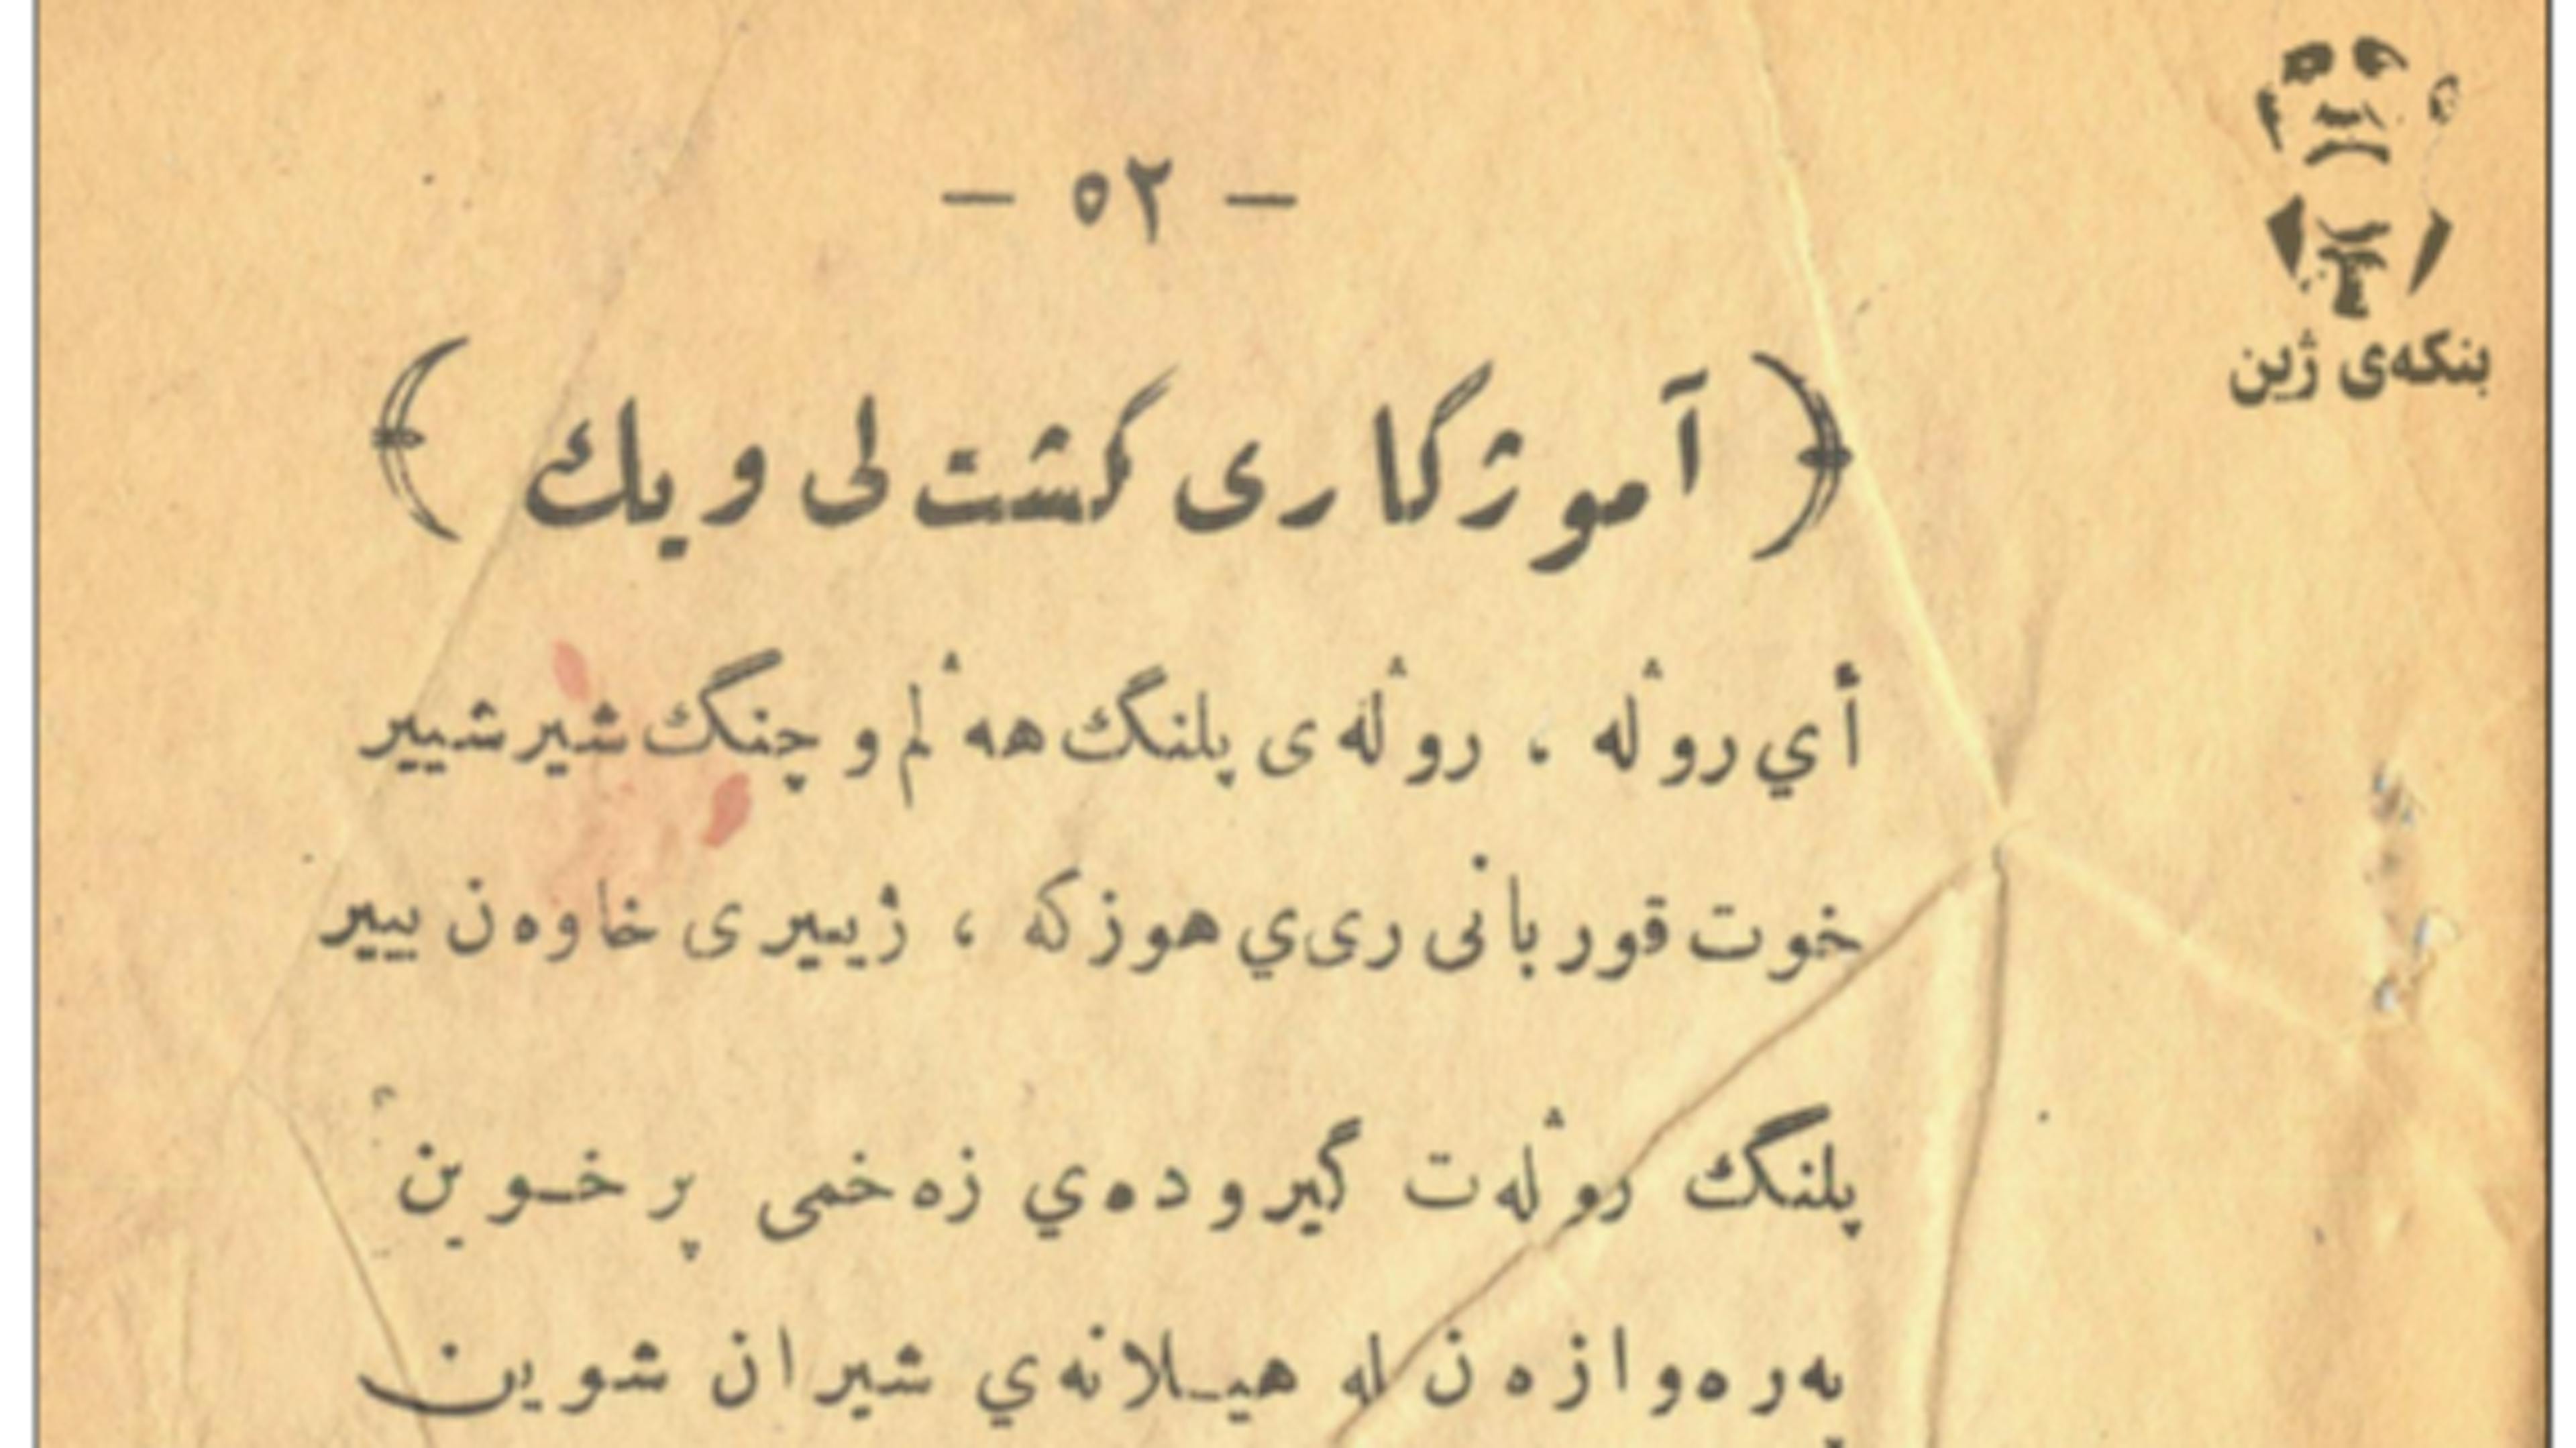 — ٥٢ —
بنکەی ژین
﴿ آموژگاری گشت لی ویك ﴾
أي روڵه . روڵه ی پلنگ هه ڵم و چنگ شیر شییر
خوت قوربانی ری ي هوز که ، ژییر ی خاوه ن بییر
پلنگ روڵه ت گیرو ده ي زه خمی پر خـوین
به ره وازه ن له هیـلانه ي شیران شوین